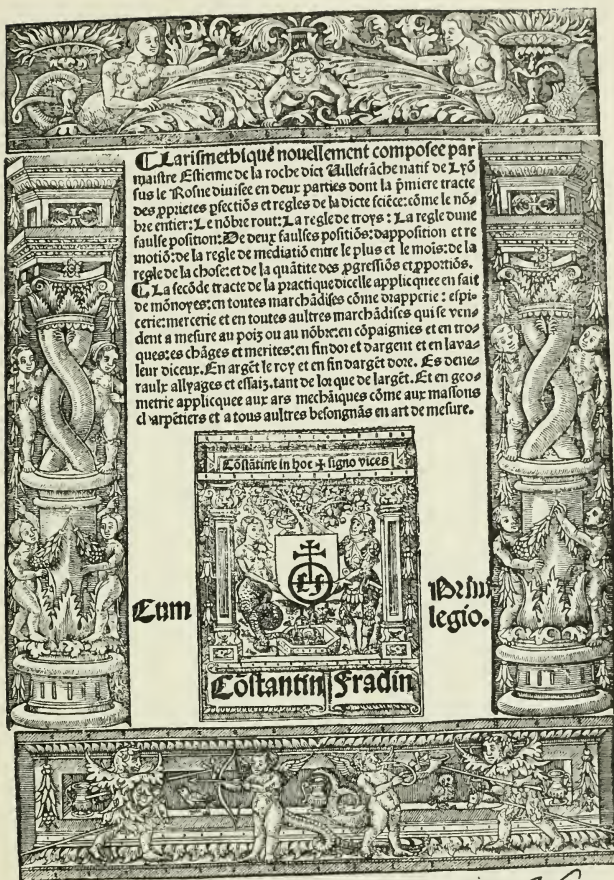 Larismethique nouellement composee par
maistre Estienne de la roche dict Villefrāche natif de Lyō
sus le Rosne diuisee en deux parties dont la p̄miere tracte
des ꝓprietes ꝑfectiōs et regles de la dicte sciēce: cōme le nō-
bre entier: Le nōbre rout: La regle de troys: La regle dune
faulse position: De deux faulses positiōs: dapposition et re
motiō: de la regle de mediatiō entre le plus et le mois: de la
regle de la chose: et de la quātite des ꝓgressiōs et ꝓportiōs.
La secōde tracte de la practique dicelle applicquee en fait
de mōnoyes: en toutes marchādises cōme drapperie: espi
cerie: mercerie et en toutes aultres marchādises qui se ven
dent a mesure au poiz ou au nōbre: en cōpaignies et en tro
ques: es chāges et merites: en fin dor et dargent et en lava-
leur diceux. En argēt le roy et en fin dargēt dore. Es dene
raulx allyages et essais. tant de lor que de largēt. Et en geo
metrie applicquee aux ars mechāiques cōme aux massons
charpētiers et a tous aultres besongnās en art de mesure.
Cōstātine in hoc signo vices
Cum Priui
legio.
Cōstantin Fradin